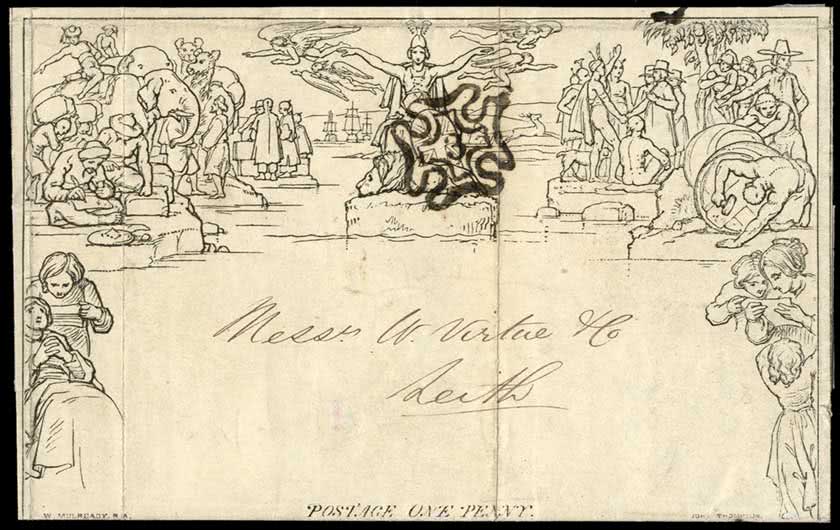 Messrs W. Virtue & Co
Leith
POSTAGE ONE PENNY.
W. MULREADY, R.A.
JOHN THOMPSON.